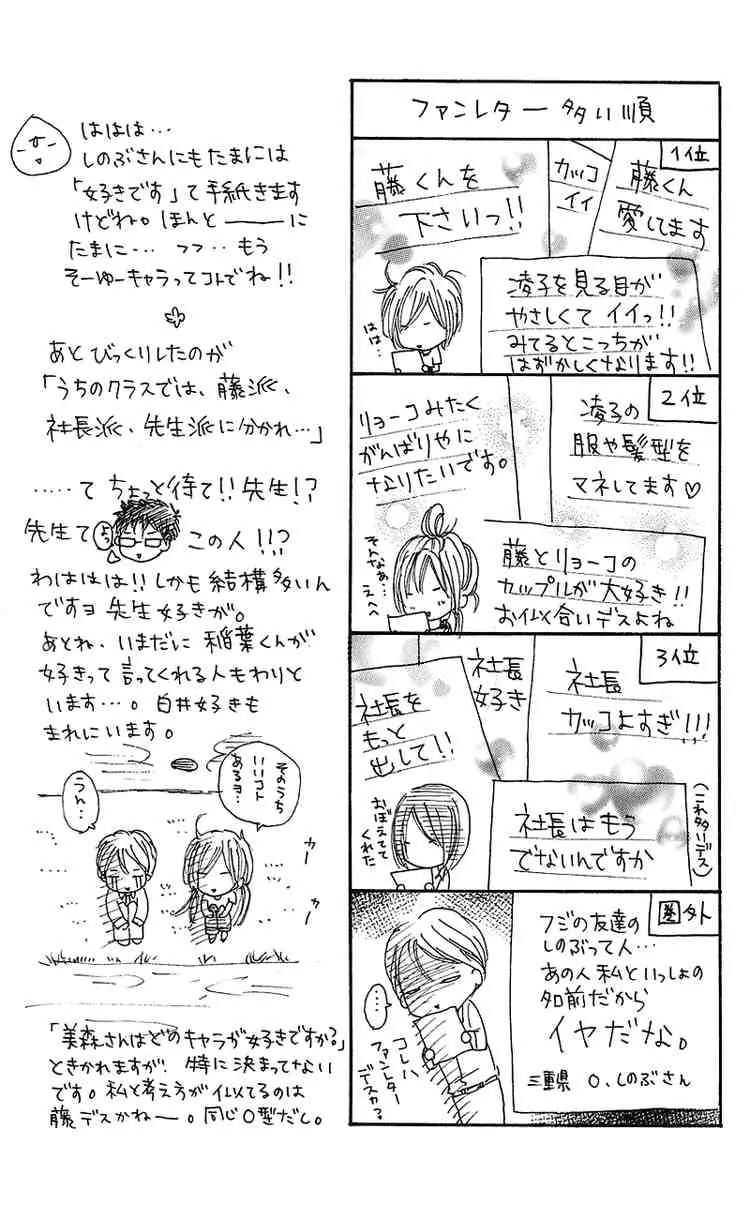 ファンレター多い順
1位
藤くん
愛してます
カッコ
イイ
藤くんを
下さいっ!!
凌子を見る目が
やさしくて イイっ!!
みてるとこっちが
はずかしくなります!!
はは…
2位
凌子の
服や髪型を
マネしてます♡
リョーコみたく
がんばりやに
なりたいです。
藤とリョーコの
カップルが大好き!!
お似合いデスよね
そんなぁ…
えへへ
3位
社長
カッコよすぎ!!!
社長
好き
社長を
もっと
出して!!
社長はもう
でないんですか
(これ多いデス)
おぼえてて
くれた
圏外
フジの友達の
しのぶって人…
あの人私といっしょの
名前だから
イヤだな。
三重県 O.しのぶさん
…
コレハ
ファンレター
デスカ?
ははは…
しのぶさんにもたまには
「好きです」て手紙きます
けどね。ほんと――に
たまに… フフ‥もう
そーゆーキャラってコトでね!!
あとびっくりしたのが
「うちのクラスでは、藤派、
社長派、先生派に分かれ…」
‥‥‥て ちょっと待て!! 先生!?
先生て この人!!?
よっ
わははは!!しかも結構多いん
ですヨ 先生好きが。
あとね、いまだに 稲葉くんが
好きって 言ってくれる人もわりと
います…。白井好きも
まれにいます。
そのうち
いいコト
あるヨ…
うん…
カー
カー
「美森さんはどのキャラが好きですか?」
ときかれますが、特に決まってない
です。私と考え方が似てるのは
藤デスかねー。同じO型だし。